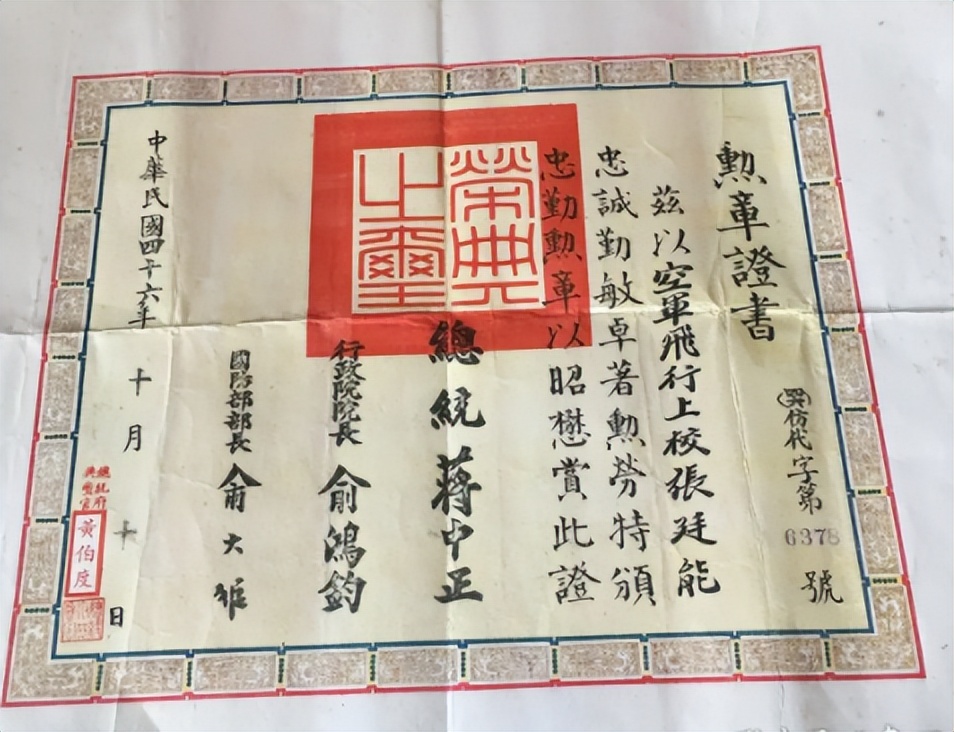 勲章證書
茲以空軍飛行上校張廷能
忠誠勤敏卓著勲勞特頒
忠勤勲章以昭懋賞此證
仿代字第6378號
榮典之璽
總統 蔣中正
行政院院長 俞鴻鈞
國防部部長 俞大維
中華民國四十六年十月十日
總統府典璽官
黃伯度